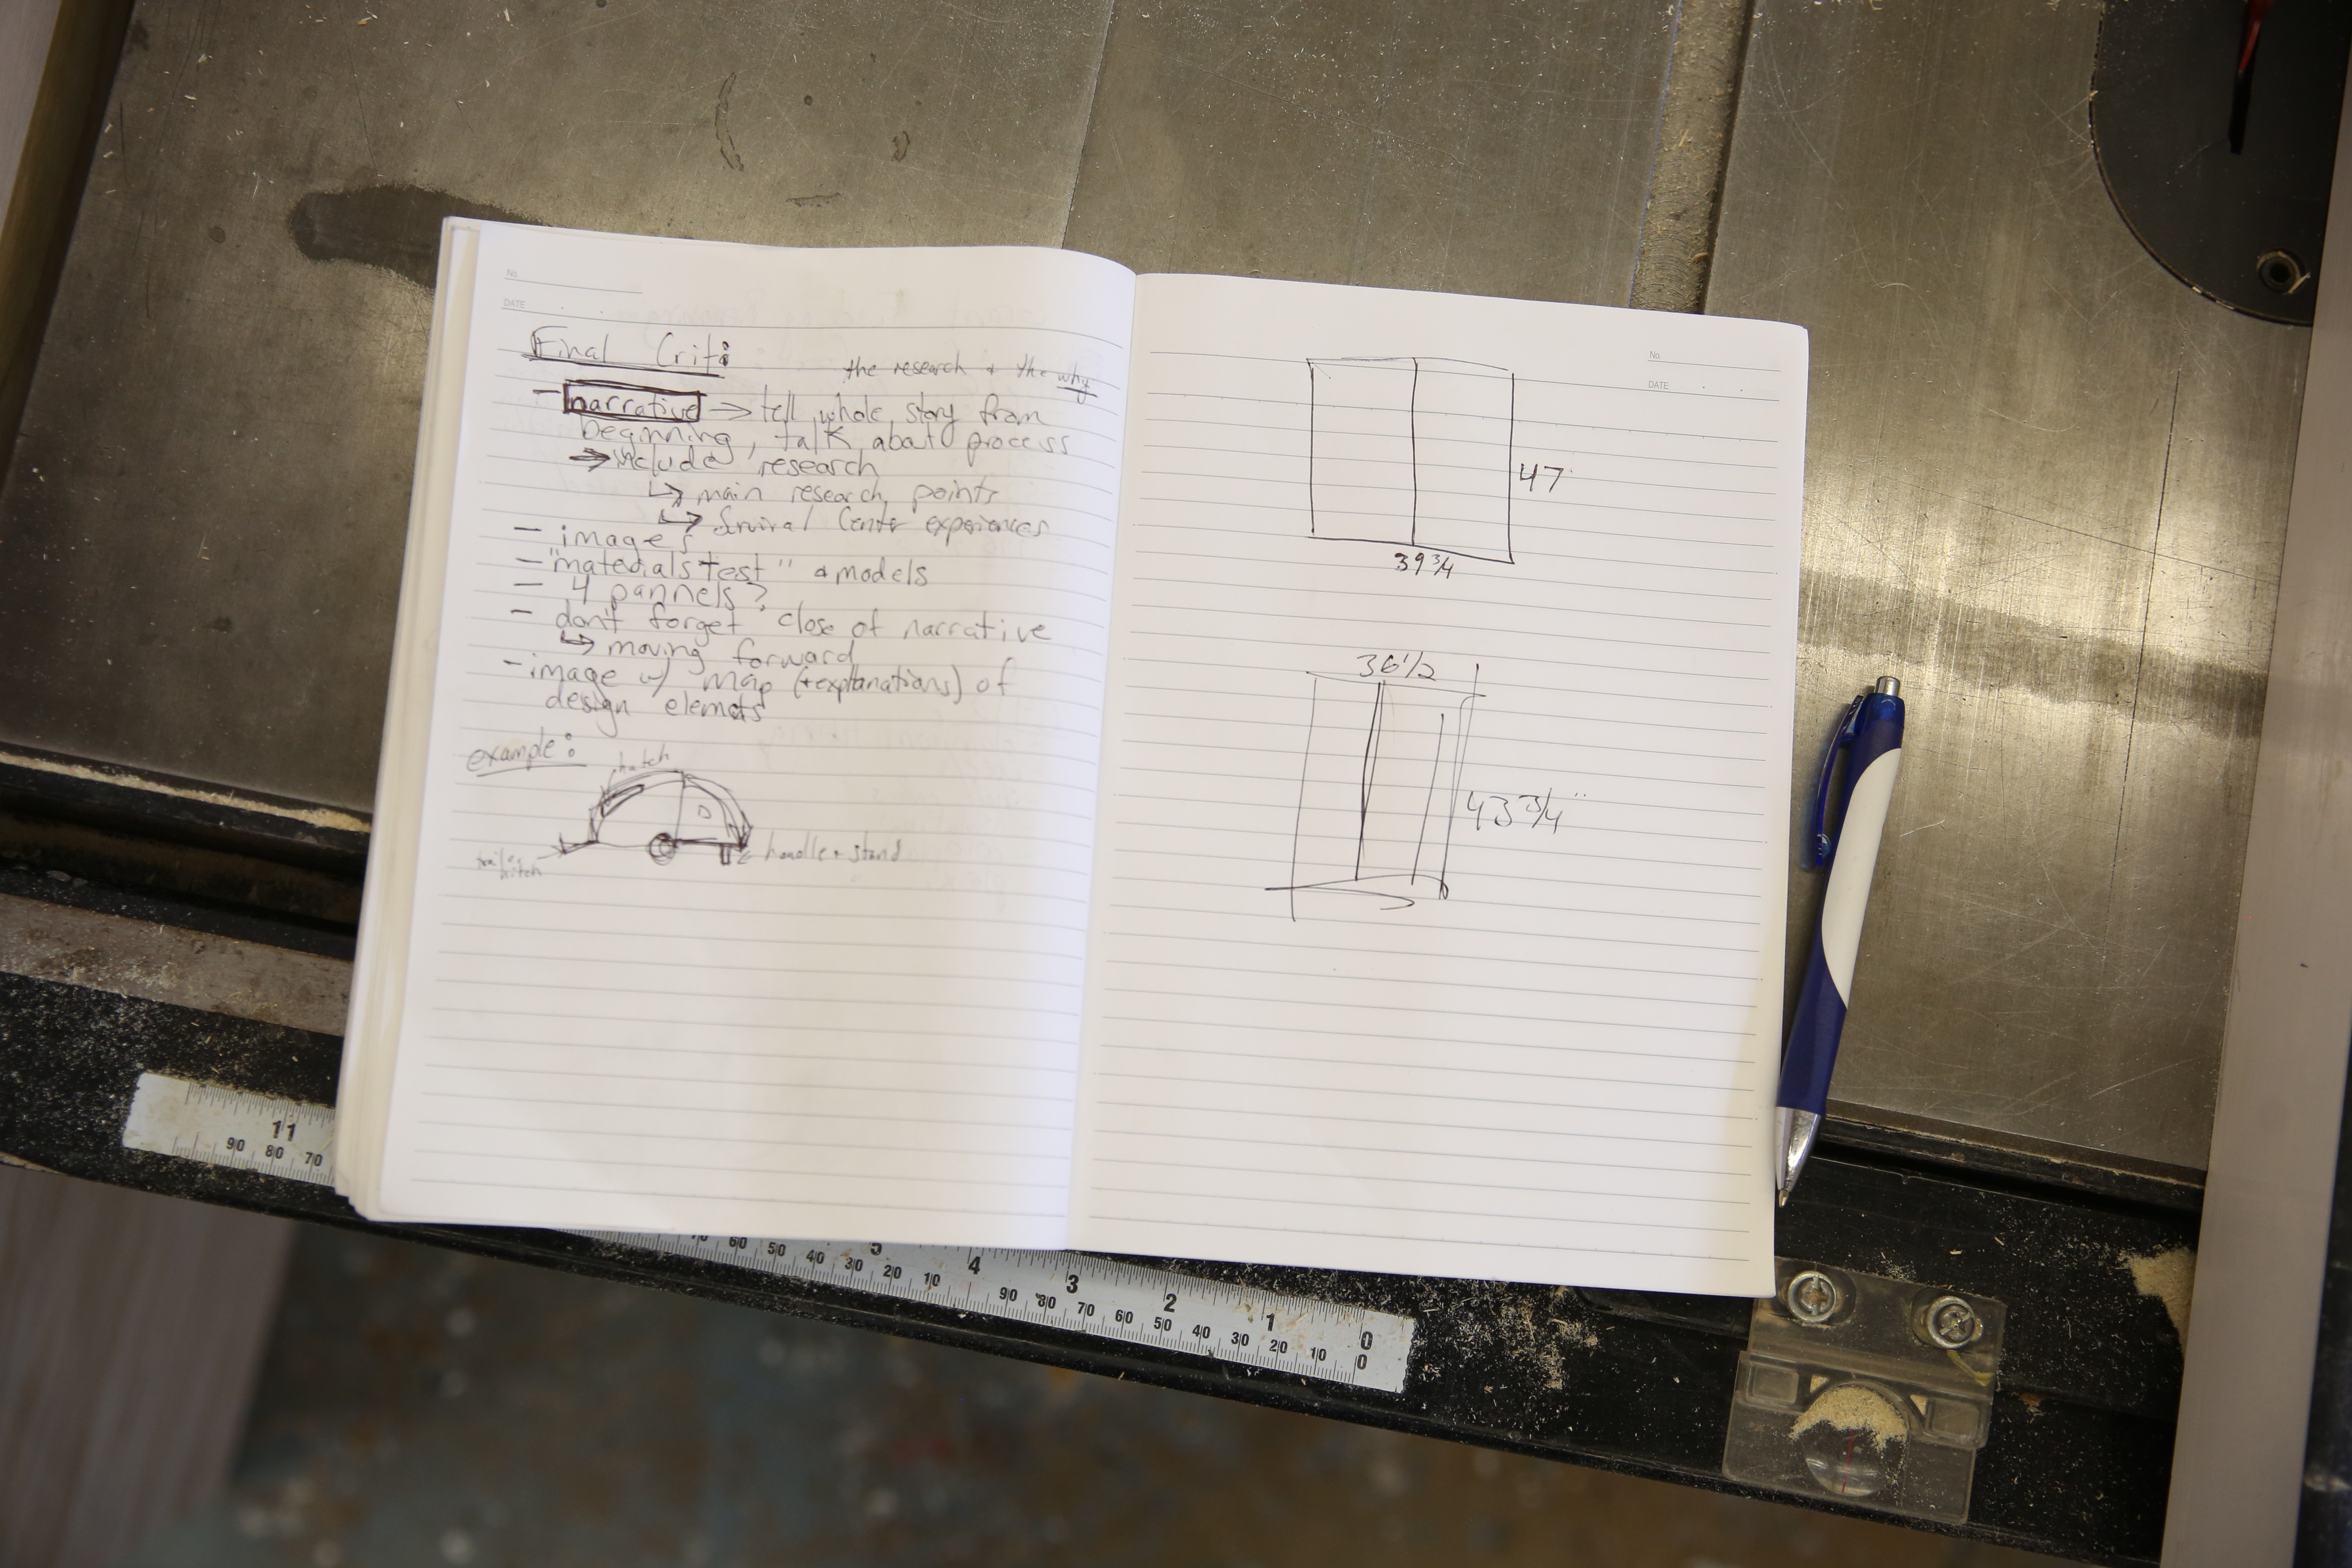 No.
DATE
Final Crit:
the research + the why
- narrative → tell whole story from
beginning, talk about process
→ include research
↳ main research points
↳ Survival Center experiences
- images
- "materials test" + models
- 4 pannels?
- don't forget close of narrative
↳ moving forward
- image w/ map (+explanations) of
design elemets
example:
hatch
trailer
hitch
handle + stand
No.
DATE
47
39 3/4
36 1/2
43 3/4"
11
90 80 70
5 4 3 2 1 0
70 60 50 40 30 20 10 90 80 70 60 50 40 30 20 10 0